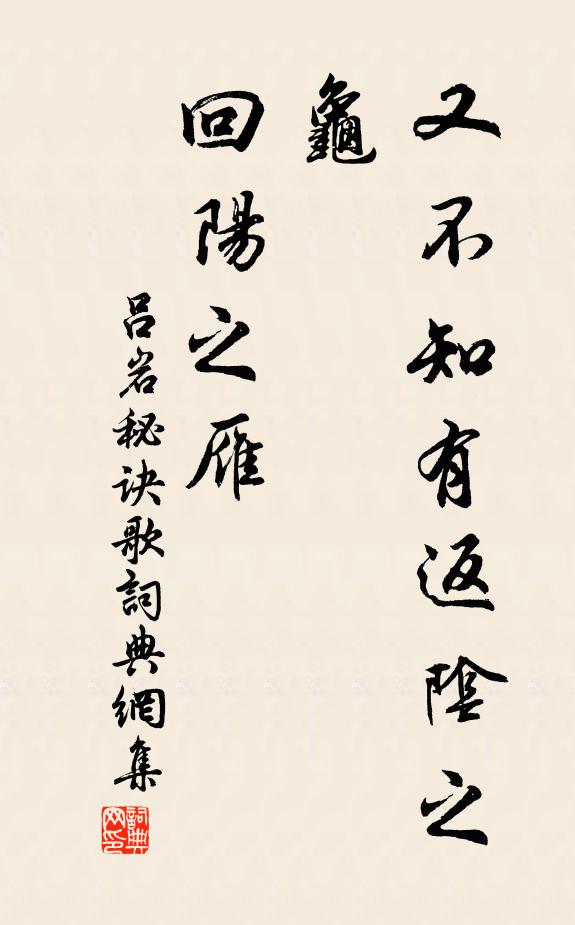 又不知有返陰之
龜
回陽之雁
呂岩秘诀歌詞典網集
詞典
网印